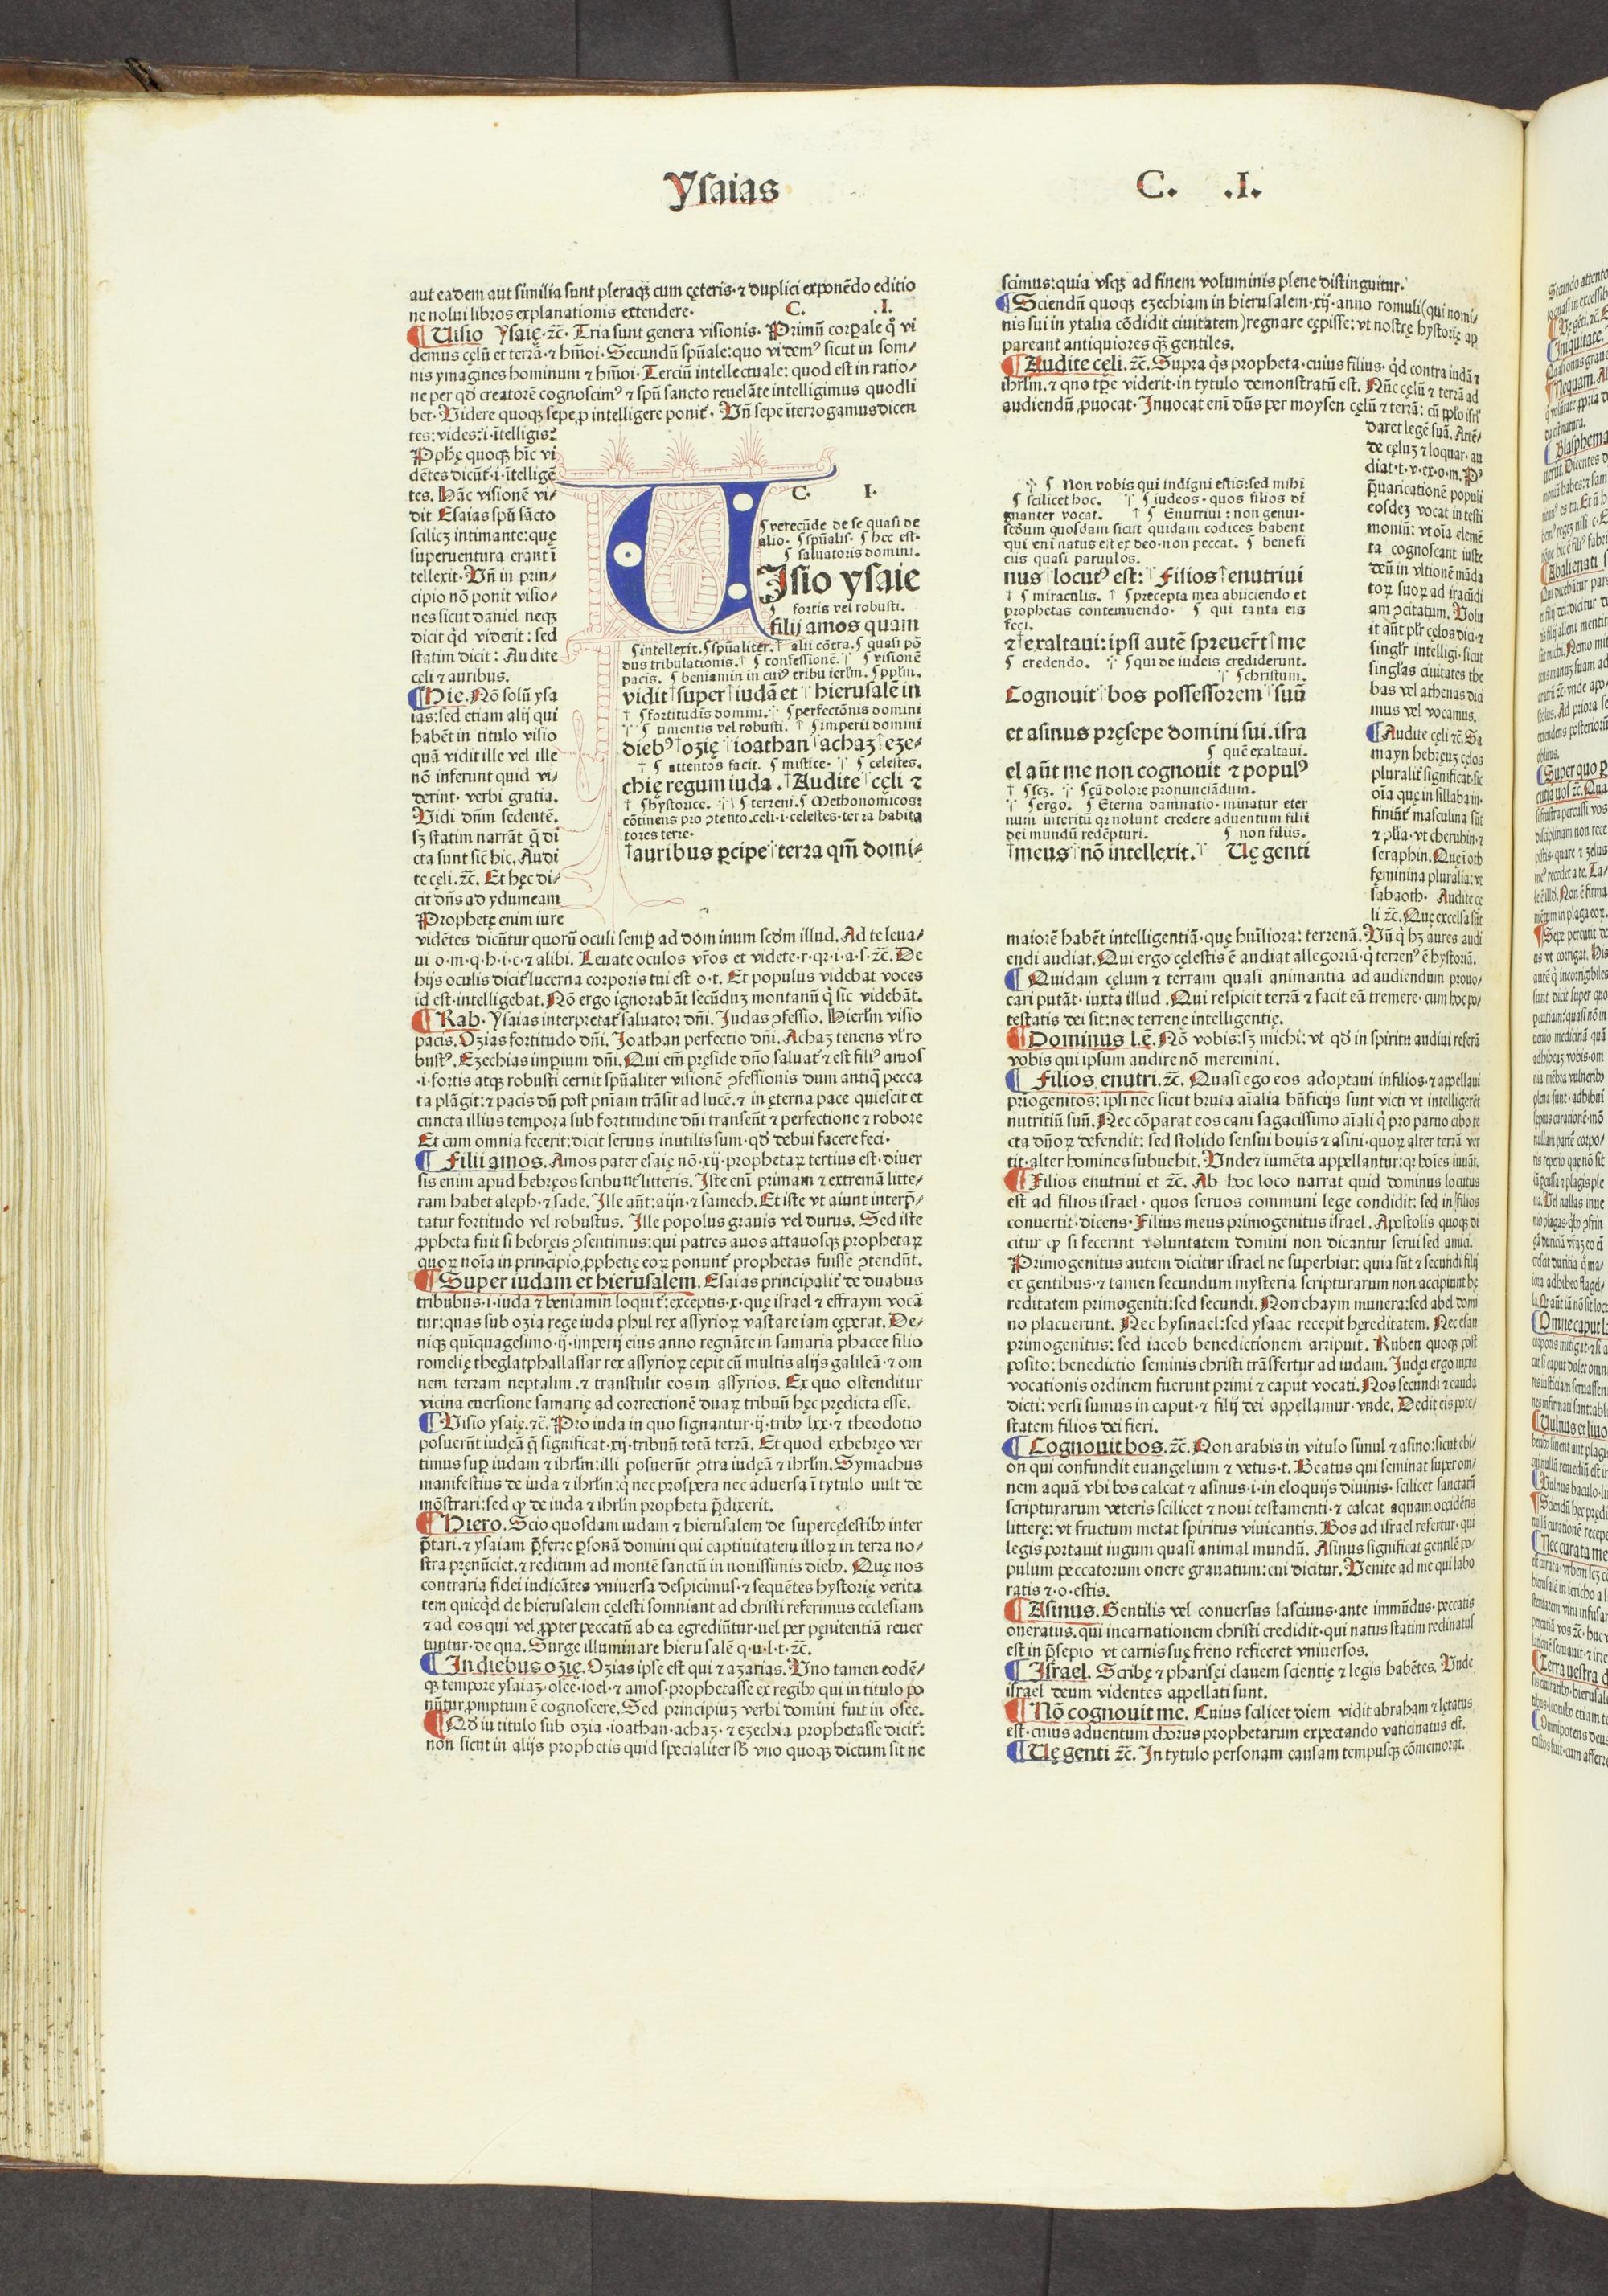 Ysaias
C. .I.
aut eadem aut similia sunt pleraqꝫ cum cęteris· ⁊ duplici exponēdo editio
ne nolui libros explanationis extendere· C. .I.
¶ Uisio Ysaię·⁊c̄· Tria sunt genera visionis· Primū corpale qͦ vi
demus cęlū et terrā·⁊ hm̄oi· Secundū spūale: quo videmꝰ sicut in som⸗
nis ymagines hominum ⁊ hm̄oi· Terciū intellectuale: quod est in ratio⸗
ne per qd̄ creatorē cognoscimꝰ ⁊ spū sancto reuelāte intelligimus quodli
bet· Videre quoqꝫ sepe p intelligere ponit̄· Vn̄ sepe īterrogamus dicen
tes: vides: i· ītelligis:
Pphę quoqꝫ hīc vi
dētes dicūt̄·i·ītelligē
tes. Hāc visionē vi⸗
dit Esaias spū sācto
scilicꝫ intimante: quę
superuentura erant ī
tellexit· Vn̄ in prin⸗
cipio nō ponit visio⸗
nes sicut daniel neqꝫ
dicit qd̄ viderit: sed
statim dicit: Audite
cęli ⁊ auribus.
¶ Hie. Nō solū ysa
ias: sed etiam alij qui
habēt in titulo visio
quā vidit ille vel ille
nō inferunt quid vi⸗
derint· verbi gratia.
Vidi dn̄m sedentē.
sꝫ statim narrāt q̄ di
cta sunt sic̄ hic. Audi
te cęli .⁊c̄. Et hęc di⸗
cit dn̄s ad ydumeam
Prophetę enim iure
C. I.
⸿ verecūde de se quasi de
alio· ⸿ spūalis· ⸿ hec est·
⸿ saluatoris domini.
Isio ysaie
⸿ fortis vel robusti.
filij amos quam
⸿ intellexit. ⸿ spūaliter. alij cōtra. ⸿ quasi pō
dus tribulationis. ⸿ confessionē. ⸿ visionē
pacis. ⸿ beniamin in cuiꝰ tribu ierlm̄. ⸿ pplm̄.
vidit super iudā et hierusalē in
⸿ fortitudīs domini. ⸿ perfectōnis domini
⸿ timentis vel robusti. ⸿ imperii domini
diebꝰ ozię ioathan achaꝫ eze⸗
⸿ attentos facit. ⸿ mistice· ⸿ celestes.
chię regum iuda. Audite cęli ⁊
⸿ hystorice. ⸿ terreni. ⸿ Methonomicos:
cōtinens pro ꝯtento.celi·i·celestes·terra habita
tores terre·
auribus pcipe terra qm̄ domi⸗
vidētes dicūtur quorū oculi semp̄ ad dominum scd̄m illud. Ad te leua⸗
ui o·m·q·h·i·c·⁊ alibi. Leuate oculos vr̄os et videte·r·qr·i·a·s·⁊c̄. De
hijs oculis dicit̄ lucerna corporis tui est o·t. Et populus videbat voces
id est·intelligebat. Nō ergo ignorabāt secūduꝫ montanū q̇ sic videbāt.
¶ Rab· Ysaias interpretat̄ saluator dn̄i. Judas ꝯfessio. Hierlm̄ visio
pacis. Ozias fortitudo dn̄i. Joathan perfectio dn̄i. Achaꝫ tenens vl̄ ro
bustꝰ. Ezechias imperium dn̄i. Qui em̄ pręside dn̄o saluat̄ ⁊ est filiꝰ amos
·i·fortis atqꝫ robusti cernit spūaliter visionē ꝯfessionis dum antiq̄ pecca
ta plāgit: ⁊ pacis dū post pn̄iam trāsit ad lucē.⁊ in ęterna pace quiescit et
cuncta illius tempora sub fortitudine dn̄i transeūt ⁊ perfectione ⁊ robore
Et cum omnia fecerit: dicit seruus inutilis sum· qd̄ debui facere feci·
¶ Filii amos. Amos pater esaię nō·xij·prophetaꝝ tertius est· diuer
sis enim apud hebręos scribunt̄ litteris. Iste enī primam ⁊ extremā litte⸗
ram habet aleph·⁊ sade. Ille aūt: aijn·⁊ samech. Et iste vt aiunt interp̄⸗
tatur fortitudo vel robustus. Ille popolus grauis vel durus. Sed iste
ꝓpheta fuit si hebręis ꝯsentimus: qui patres auos attauosqꝫ prophetaꝝ
quoꝝ noīa in principio ꝓphetię eoꝝ ponunt̄ prophetas fuisse ꝯtendūt.
¶ Super iudam et hierusalem. Esaias principalit̄ de duabus
tribubus·i·iuda ⁊ beniamin loquit̄: exceptis·x·quę israel ⁊ effraym vocā
tur: quas sub ozia rege iuda phul rex assyrioꝝ vastare iam cęperat. De⸗
niqꝫ quīquagesimo·ij·imperij eius anno regnāte in samaria phacee filio
romelię theglatphallassar rex assyrioꝝ cepit cū multis alijs galileā·⁊ om
nem terram neptalim·⁊ transtulit eos in assyrios. Ex quo ostenditur
vicina euersione samarię ad correctionē duaꝝ tribuū hęc prędicta esse.
¶ Visio ysaię.⁊c̄. Pro iuda in quo signantur·ij·tribꝰ lxx·⁊ theodotio
posuerūt iudęā q̄ significat·xij·tribuū totā terrā. Et quod ex hebręo ver
timus sup̄ iudam ⁊ ihrlm̄: illi posuerūt ꝯtra iudęā ⁊ ihrlm̄. Symachus
manifestius de iuda ⁊ ihrlm̄: q̇ nec prospera nec aduersa ī tytulo uult de
mōstrari: sed ꝙ de iuda ⁊ ihrlm̄ propheta p̄dixerit.
¶ Hiero. Scio quosdam iudam ⁊ hierusalem de supercęlestibꝰ inter
p̄tari·⁊ ysaiam p̄ferre psonā domini qui captiuitatem illoꝝ in terra no⸗
stra pręnūciet.⁊ reditum ad montē sanctū in nouissimis diebꝰ. Quę nos
contraria fidei iudicātes vniuersa despicimus·⁊ sequētes hystorię verita
tem quicqd̄ de hierusalem cęlesti somniant ad christi referimus ecclesiam
⁊ ad eos qui vel ꝓpter peccatū ab ea egrediūtur·uel per pęnitentiā reuer
tuntur·de qua. Surge illuminare hierusalē q·u·l·t·⁊c̄.
¶ In diebus ozię. Ozias ipse est qui ⁊ azarias. Vno tamen eodē⸗
qꝫ tempore ysaiaꝫ·osee·ioel·⁊ amos·prophetasse ex regibꝰ qui in titulo po
nūtur promptum ē cognoscere. Sed principiuꝫ verbi domini fuit in osee.
¶ Qd̄ in titulo sub ozia·ioathan·achaꝫ·⁊ ezechia prophetasse dicit̄:
non sicut in alijs prophetis quid specialiter sb̄ vno quoqꝫ dictum sit ne
scimus: quia vsqꝫ ad finem voluminis plene distinguitur·
¶ Sciendū quoqꝫ ezechiam in hierusalem·xij·anno romuli (qui nomi⸗
nis sui in ytalia cōdidit ciuitatem) regnare cępisse: vt nostrę hystorię ap
pareant antiquiores qꝫ gentiles.
¶ Audite cęli. ⁊c̄. Supra qͥs propheta·cuius filius· qd̄ contra iudā ⁊
ihrlm̄.⁊ quo tp̄e viderit·in tytulo demonstratū est. Nūc cęlū ⁊ terrā ad
audiendū ꝓuocat· Inuocat enī dn̄s per moysen cęlū ⁊ terrā: cū pplo isrl̄
daret legē suā. Attē⸗
de cęluꝫ ⁊ loquar·au
diat·t·v·ex·o·m·Pꝰ
p̄uaricationē populi
eosdeꝫ vocat in testi
moniū: vt oīa elemē
ta cognoscant iuste
deū in vltionē māda
toꝝ suoꝝ ad iracūdi
am ꝯcitatum. Volu
it aūt plr̄ cęlos dici·⁊
singlr̄ intelligi·sicut
singlas ciuitates the
bas vel athenas dici
mus vel vocamus.
¶ Audite cęli ⁊c̄. Sa
mayn hebręuꝫ cęlos
pluralit̄ significat·sic
oīa quę in sillaba im·
finiūt̄ masculina sūt
⁊ plīa·vt cherubin·⁊
seraphin. Quę ī oth
fęminina pluralia: vt
sabaoth· Audite cę
li ⁊c̄. Quę excelsa sūt
⸿ Non vobis qui indigni estis: sed mihi
⸿ scilicet hoc. ⸿ iudeos·quos filios di
gnanter vocat. ⸿ Enutriui: non genui·
scd̄um quosdam sicut quidam codices habent
qui eni natus est ex deo·non peccat. ⸿ benefi
ciis quasi paruulos.
nus locutꝰ est: Filios enutriui
⸿ miraculis. ⸿ precepta mea abiiciendo et
prophetas contemnendo· ⸿ qui tanta eis
feci.
⁊ exaltaui: ipsi autē spreuer̄t me
⸿ credendo. ⸿ qui de iudeis crediderunt.
⸿ christum.
Cognouit bos possessorem suū
et asinus pręsepe domini sui. isra
⸿ quē exaltaui.
el aūt me non cognouit ⁊ populꝰ
⸿ scꝫ. ⸿ cū dolore pronunciādum.
⸿ ergo. ⸿ Eterna damnatio·minatur eter
num interitū qꝛ nolunt credere aduentum filii
dei mundū redēpturi. ⸿ non filiis.
meus nō intellexit. Uę genti
maiorē habēt intelligentiā·quę hūiliora: terrenā. Vn̄ q̇ hꝫ aures audi
endi audiat. Qui ergo cęlestis ē audiat allegoriā·q̇ terrenꝰ ē hystoriā.
¶ Quidam cęlum ⁊ terram quasi animantia ad audiendum prouo⸗
cari putāt·iuxta illud. Qui respicit terrā ⁊ facit eā tremere·cum hoc po⸗
testatis dei sit: nec terrenę intelligentię.
¶ Dominus l.ē. Nō vobis: sꝫ michi: vt qd̄ in spiritu audiui referā
vobis qui ipsum audire nō meremini.
¶ Filios enutri.⁊c̄. Quasi ego eos adoptaui in filios·⁊ appellaui
priogenitos: ipsi nec sicut bruta aīalia bn̄ficijs sunt victi vt intelligerēt
nutritiū suū. Nec cōparat eos cani sagacissimo aīali q̇ pro paruo cibo te
cta dn̄oꝝ defendit: sed stolido sensui bouis ⁊ asini·quoꝝ alter terrā ver
tit·alter homines subuehit. Vnde ⁊ iumēta appellantur: qꝛ hoīes iuuāt.
¶ Filios enutriui et ⁊c̄. Ab hoc loco narrat quid dominus locutus
est ad filios israel·quos seruos communi lege condidit: sed in filios
conuertit·dicens· Filius meus primogenitus israel. Apostolis quoqꝫ di
citur ꝙ si fecerint voluntatem domini non dicantur serui sed amici.
Primogenitus autem dicitur israel ne superbiat: quia sūt ⁊ secundi filij
ex gentibus·⁊ tamen secundum mysteria scripturarum non accipiunt hę
reditatem primogeniti: sed secundi. Non chaym munera: sed abel domi
no placuerunt. Nec hysmael: sed ysaac recepit hęreditatem. Nec esau
primogenitus: sed iacob benedictionem arripuit. Ruben quoqꝫ post
posito: benedictio seminis christi trāsfertur ad iudam. Judęi ergo iuxta
vocationis ordinem fuerunt primi ⁊ caput vocati. Nos secundi ⁊ cauda
dicti: versi sumus in caput·⁊ filij dei appellamur·vnde. Dedit eis pote⸗
statem filios dei fieri.
¶ Cognouit bos.⁊c̄. Non arabis in vitulo simul ⁊ asino: sicut ebi⸗
on qui confundit euangelium ⁊ vetus·t. Beatus qui seminat super om⸗
nem aquā vbi bos calcat ⁊ asinus·i·in eloquijs diuinis·scilicet sanctarū
scripturarum veteris scilicet ⁊ noui testamenti·⁊ calcat aquam occidētis
litterę: vt fructum metat spiritus viuicantis. Bos ad israel refertur·qui
legis portauit iugum quasi animal mundū. Asinus significat gentilē po⸗
pulum peccatorum onere grauatum: cui dicitur. Venite ad me qui labo
ratis ⁊·o·estis.
¶ Asinus. Gentilis vel conuersus lasciuus·ante immūdus·peccatis
oneratus.qui incarnationem christi credidit·qui natus statim reclinatus
est in p̄sepio vt carnis suę freno reficeret vniuersos.
¶ Israel. Scribę ⁊ pharisęi clauem scientię ⁊ legis habētes. Vnde
israel deum videntes appellati sunt.
¶ Nō cognouit me. Cuius scilicet diem vidit abraham ⁊ lętatus
est·cuius aduentum chorus prophetarum expectando vaticinatus est.
¶ Uę genti ⁊c̄. In tytulo personam causam tempusqꝫ cōmemorat.